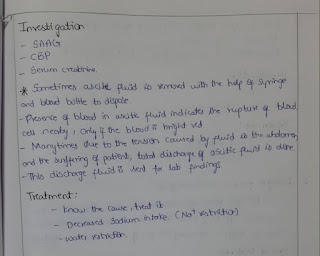 Investigation
- SAAG
- CBP
- Serum creatinine.
* Sometimes ascitic fluid is removed with the help of syringe
and blood bottle to dispose.
- Presence of blood in ascitic fluid indicates the rupture of blood
cell nearby, only if the blood is bright red
- Many times due to the tension caused by fluid in the abdomen,
and the suffering of patient, total discharge of ascitic fluid is done.
- This discharge fluid is sent for lab findings.
Treatment:
- Know the cause, treat it
- Decreased sodium intake. (Na+ restriction)
- water restriction